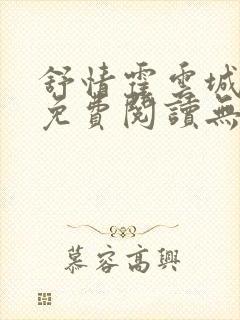 舒情霍雲城
免費閱讀無
慕容高興